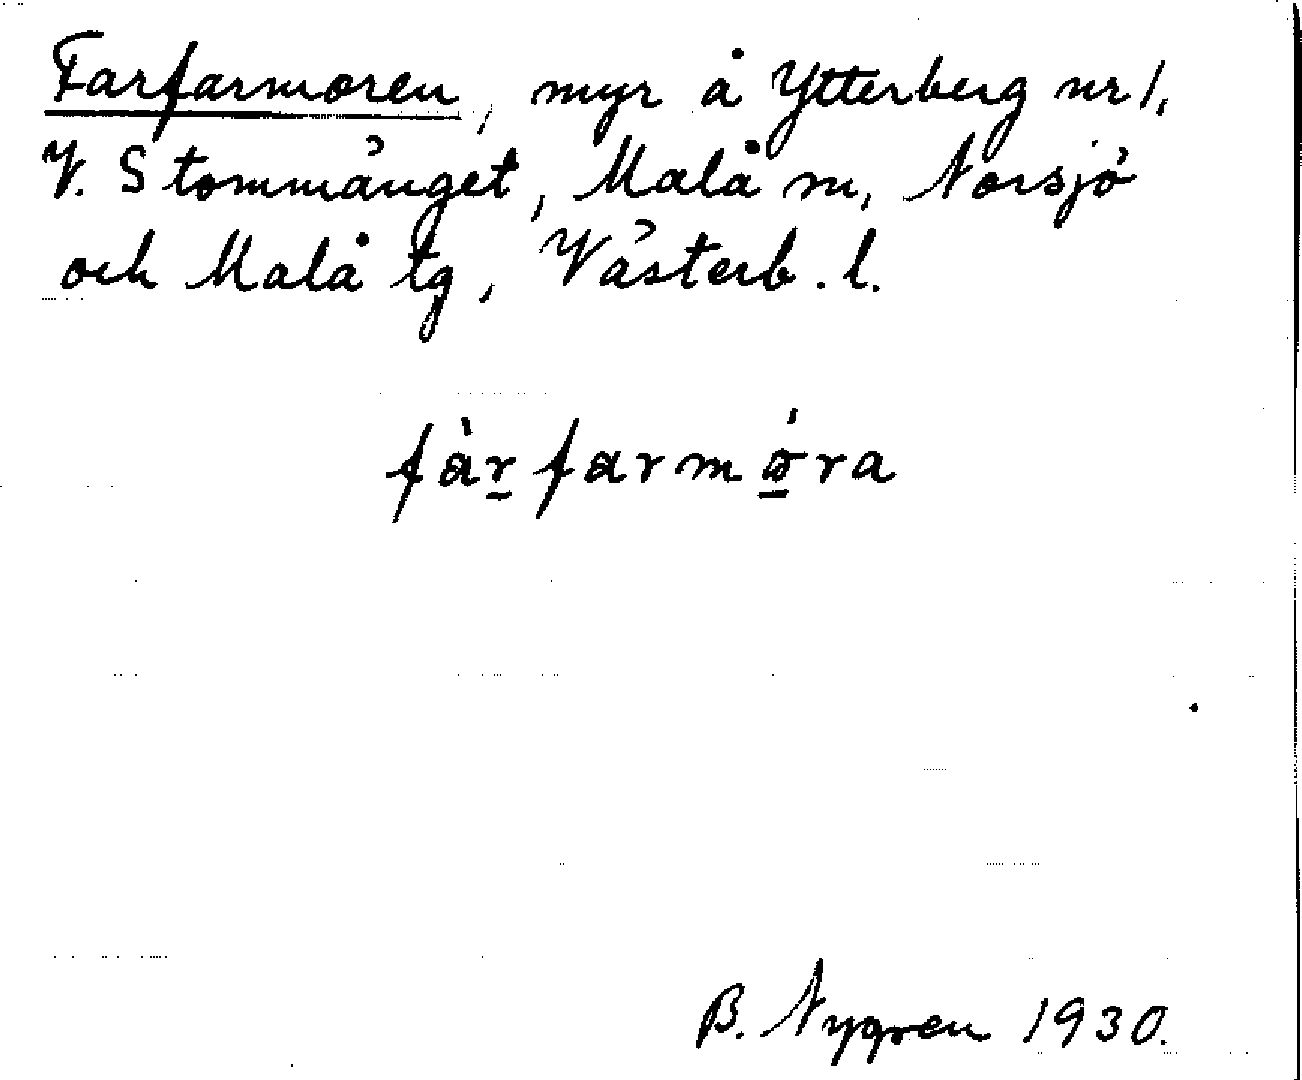 Farfarmoren, myr å Ytterberg nr 1,
V. Stommänget, Malå sn, Norsjö
och Malå tg, Västerb. l.
fàrfarmóra
B. Nygren 1930.